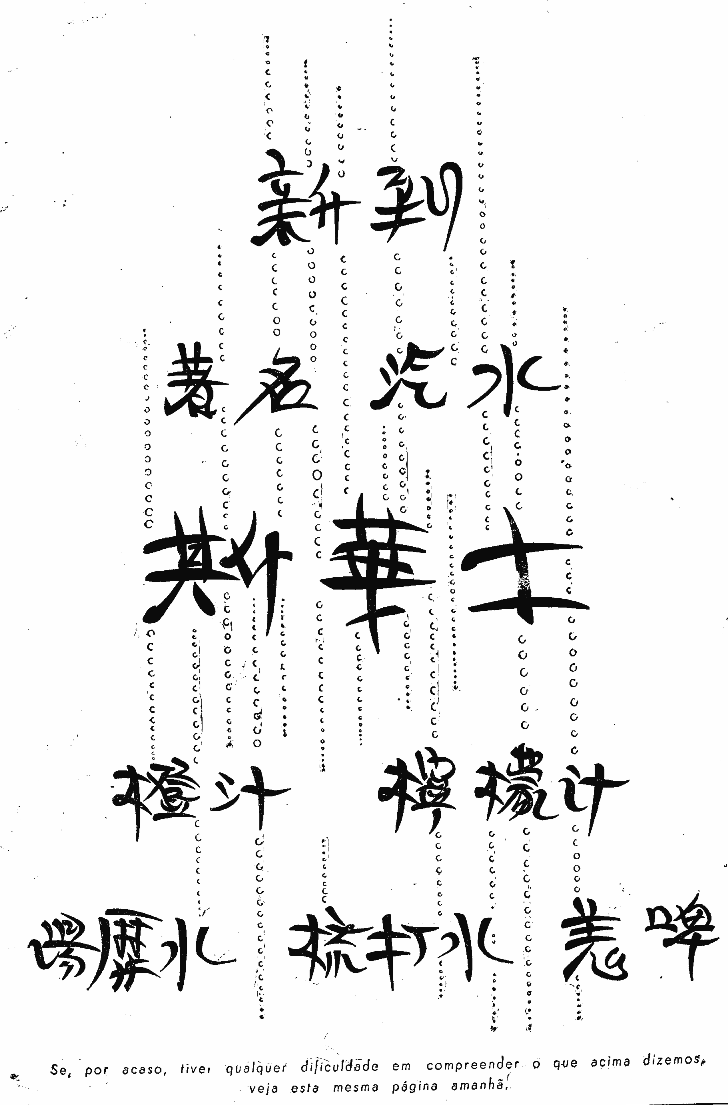 新到
著名汽水
斯華士
橙汁 檸檬汁
湯歷水 梳打水 羗啤
Se, por acaso, tiver qualquer dificuldade em compreender o que acima dizemos,
veja esta mesma página amanhã.